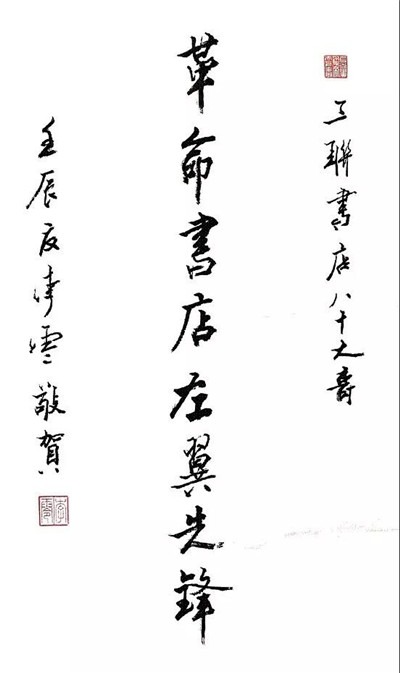 三聯書店八十大壽
革命書店左翼先鋒
壬辰夏敬賀